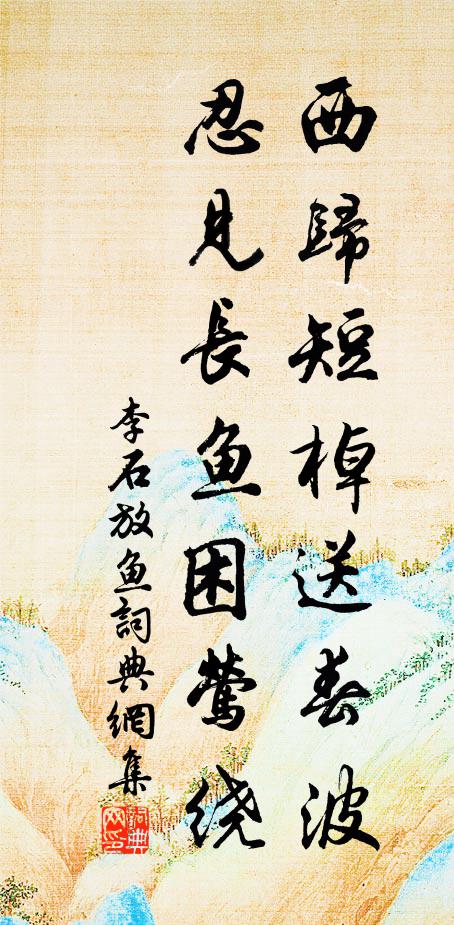 西歸短棹送春波
忍見長鱼困鶯绕
李石放鱼詞典網集
詞典网印